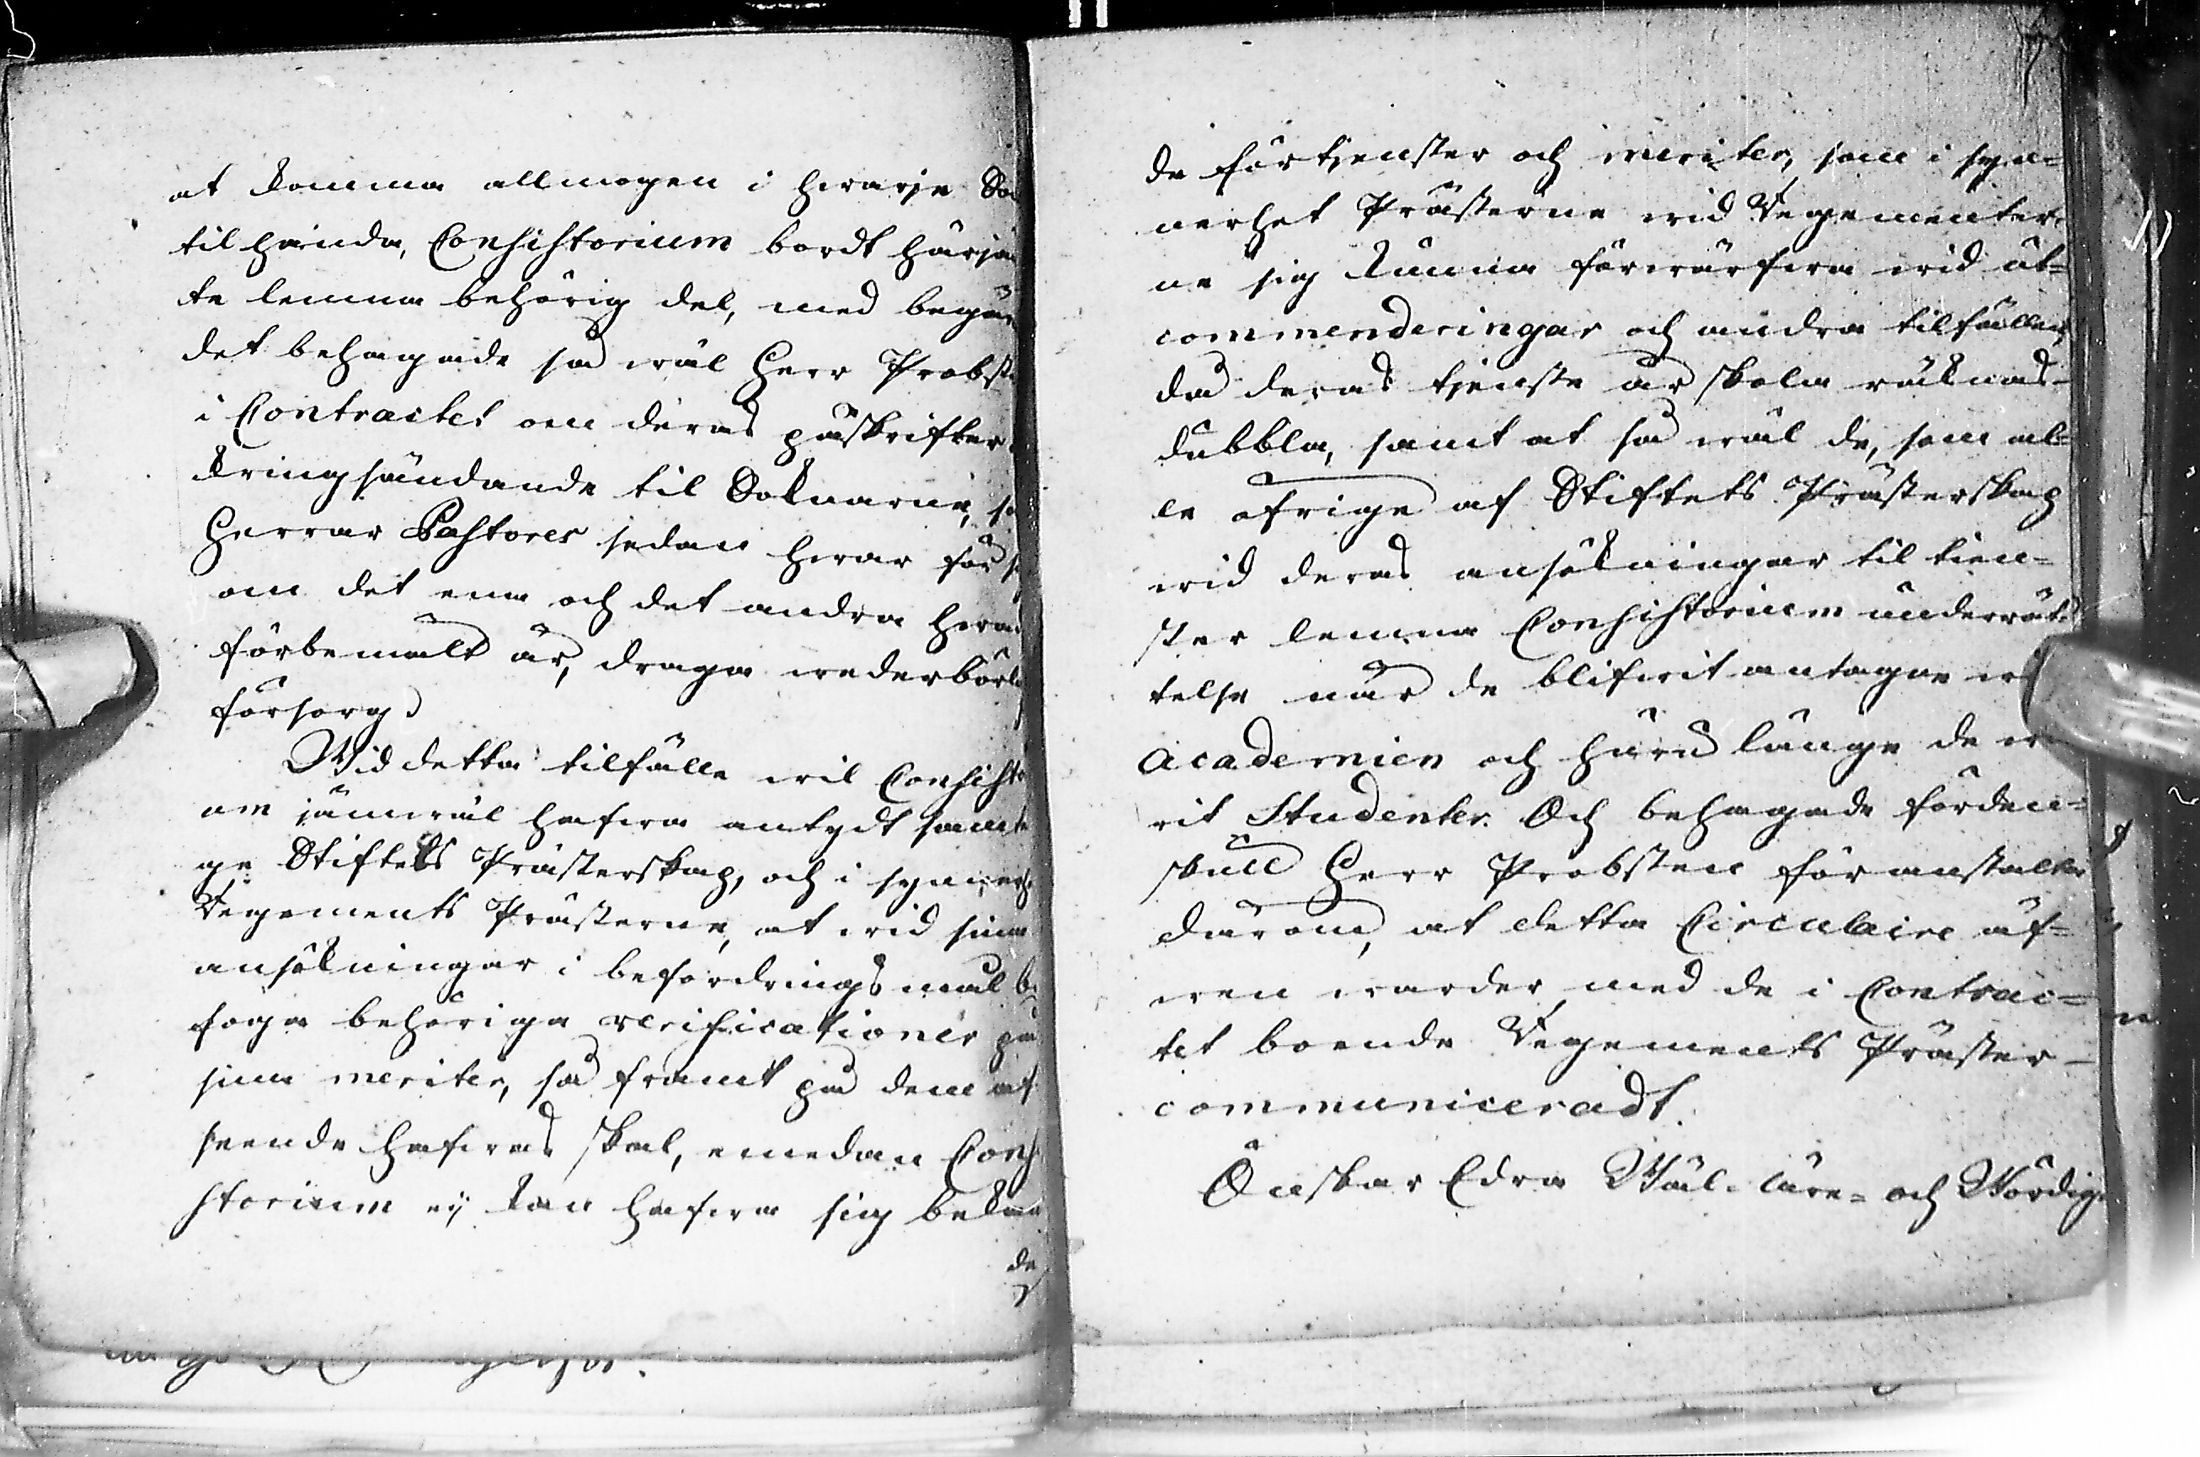 at komma allmogen i hwarje
til handa, Consistorium bordt härjä
te lemna behörig del, med begär
det behagade så wäl Herr Probst
i Contractet om deras påskrifter
kringsändande til Soknarne, so
Herrar Pastores sedan hwar för s
om det ena och det andra hwa
förbemält är, draga wederbörlig
försorg.
Wid detta tilfälle wil Consisto
um jämwäl hafwa antydt samt
ge Stiftets Prästerskap, och i synnerh
Regements Prästerne, at wid sina
ansökningar i befordrings mål bi
foga behöriga verificationer på
sina meriter, så framt på dem af
seende hafwas skal, emedan Consi
storium ej kan hafwa sig bekan
de
de förtjenster och meriter, som i syn=
nerhet Prästerne wid Regementer
ne sig kunna förwärfwa wid ut=
commenderingar och andra tilfällen,
då deras tjenste år skola räknas
dubbla, samt at så wäl de, som al=
le öfrige af Stiftets Prästerskap
wid deras ansökningar til tien=
ster lemna Consistorium underrät=
telse när de blifwit antagne w
Academien och huru länge de w
rit Studenter. Och behagade fördens=
skull Herr Probsten föranstalta
därom, at detta Circulaire äf=
wen warder med de i Contrac=
tet boende Regements Präster
communiceradt.
Önskar Edra Wäl-läre= och Wördig